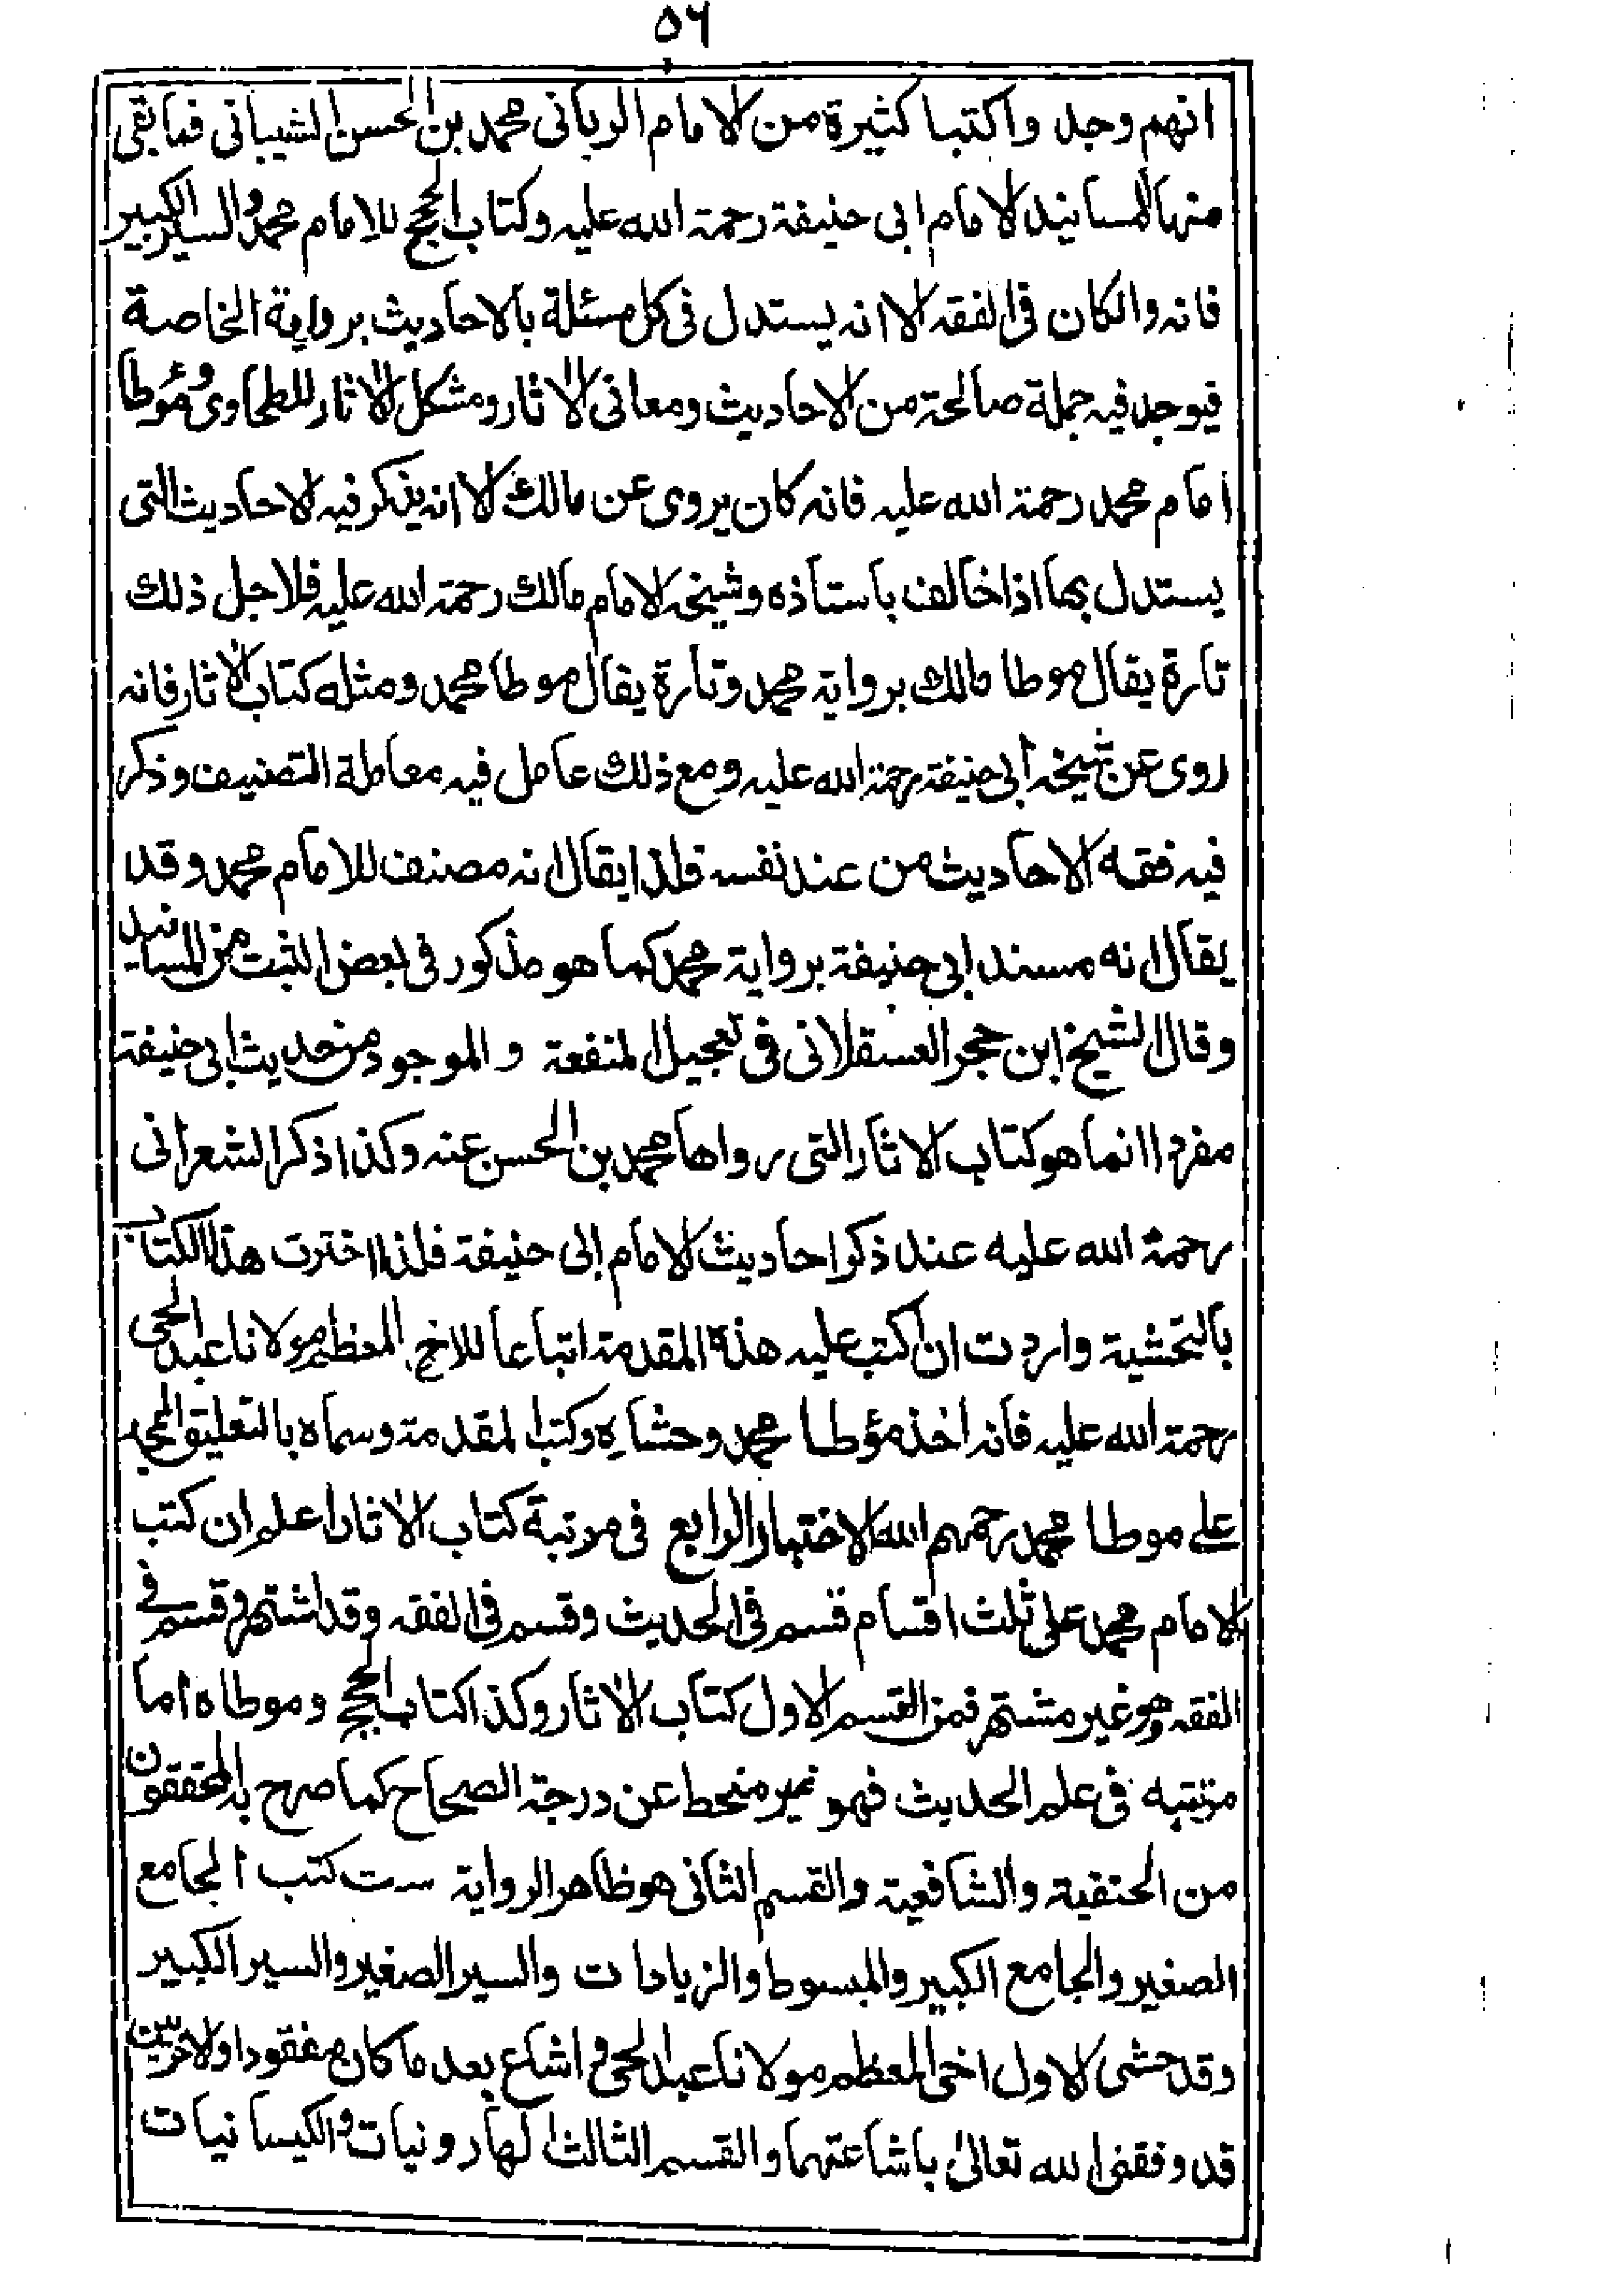 ٥٦
انهم وجد واكتبا كثيرة من الامام الربانى محمد بن الحسن الشيبانى فما بقى
منها المسانيد الامام ابى حنيفة رحمة الله عليه وكتاب الحجج للامام محمد والسير الكبير
فانه والكان فى الفقه الا انه يستدل فى كل مسئلة بالاحاديث برواية الخاصة
فيوجد فيه جملة صالحة من الاحاديث ومعانى الاثار ومشكل الاثار للطحاوى وموطا
امام محمد رحمة الله عليه فانه كان يروى عن مالك الا انه يذكر فيه الاحاديث التى
يستدل بها اذا خالف باستاذه وشيخه الامام مالك رحمة الله عليه فلاجل ذلك
تارة يقال موطا مالك برواية محمد وتارة يقال موطا محمد ومثله كتاب الاثار فانه
روى عن شيخه ابى حنيفة رحمة الله عليه ومع ذلك عامل فيه معاملة التصنيف وذكر
فيه فقه الاحاديث من عند نفسه فلذا يقال انه مصنف للامام محمد وقد
يقال انه مسند ابى حنيفة برواية محمد كما هو مذكور فى بعض الثبت من المسانيد
وقال الشيخ ابن حجر العسقلانى فى تعجيل المنفعة والموجود من حديث ابى حنيفة
مفردا انما هو كتاب الاثار التى رواها محمد بن الحسن عنه وكذا ذكر الشعرانى
رحمة الله عليه عند ذكر احاديث الامام ابى حنيفة فلذا اخترت هذا الكتاب
بالتحشية واردت ان اكتب عليه هذه المقدمة اتباعا للاخ المعظم مولانا عبد الحى
رحمة الله عليه فانه اخذ مؤطا محمد وحشاه وكتب المقدمة وسماه بالتعليق الممجد
على موطا محمد رحمهم الله الاختبار الرابع فى مرتبة كتاب الاثار اعلم ان كتب
الامام محمد على ثلث اقسام قسم فى الحديث وقسم فى الفقه وقد اشتهر وقسم فى
الفقه وهو غير مشتهر فمن القسم الاول كتاب الاثار وكذا كتاب الحجج وموطاه اما
مرتبته فى علم الحديث فهو غير منحط عن درجة الصحاح كما صرح به المحققون
من الحنفية والشافعية والقسم الثانى هو ظاهر الرواية ست كتب الجامع
الصغير والجامع الكبير والمبسوط والزيادات والسير الصغير والسير الكبير
وقد حشى الاول اخى المعظم مولانا عبد الحى و اشاع بعد ما كان مفقودا والاخريين
قد وفقنى الله تعالى باشاعتهما والقسم الثالث الهارونيات والكيسانيات